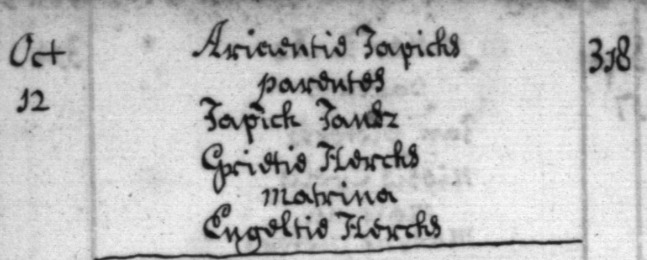 Oct
12
Ariaentie Japicks
parentes
Japick Jansz
Grietie Hercks
matrina
Engeltie Hercks
318